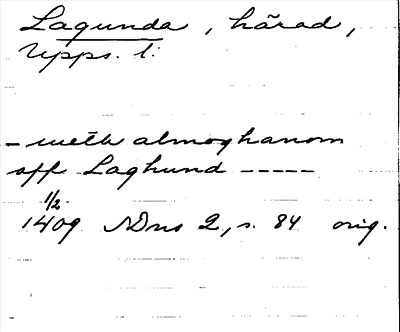 Lagunda, härad,
Upps. l.
- meth almoghanom
off Laghund -----
1/2
1409 SDns 2, s. 84 orig.